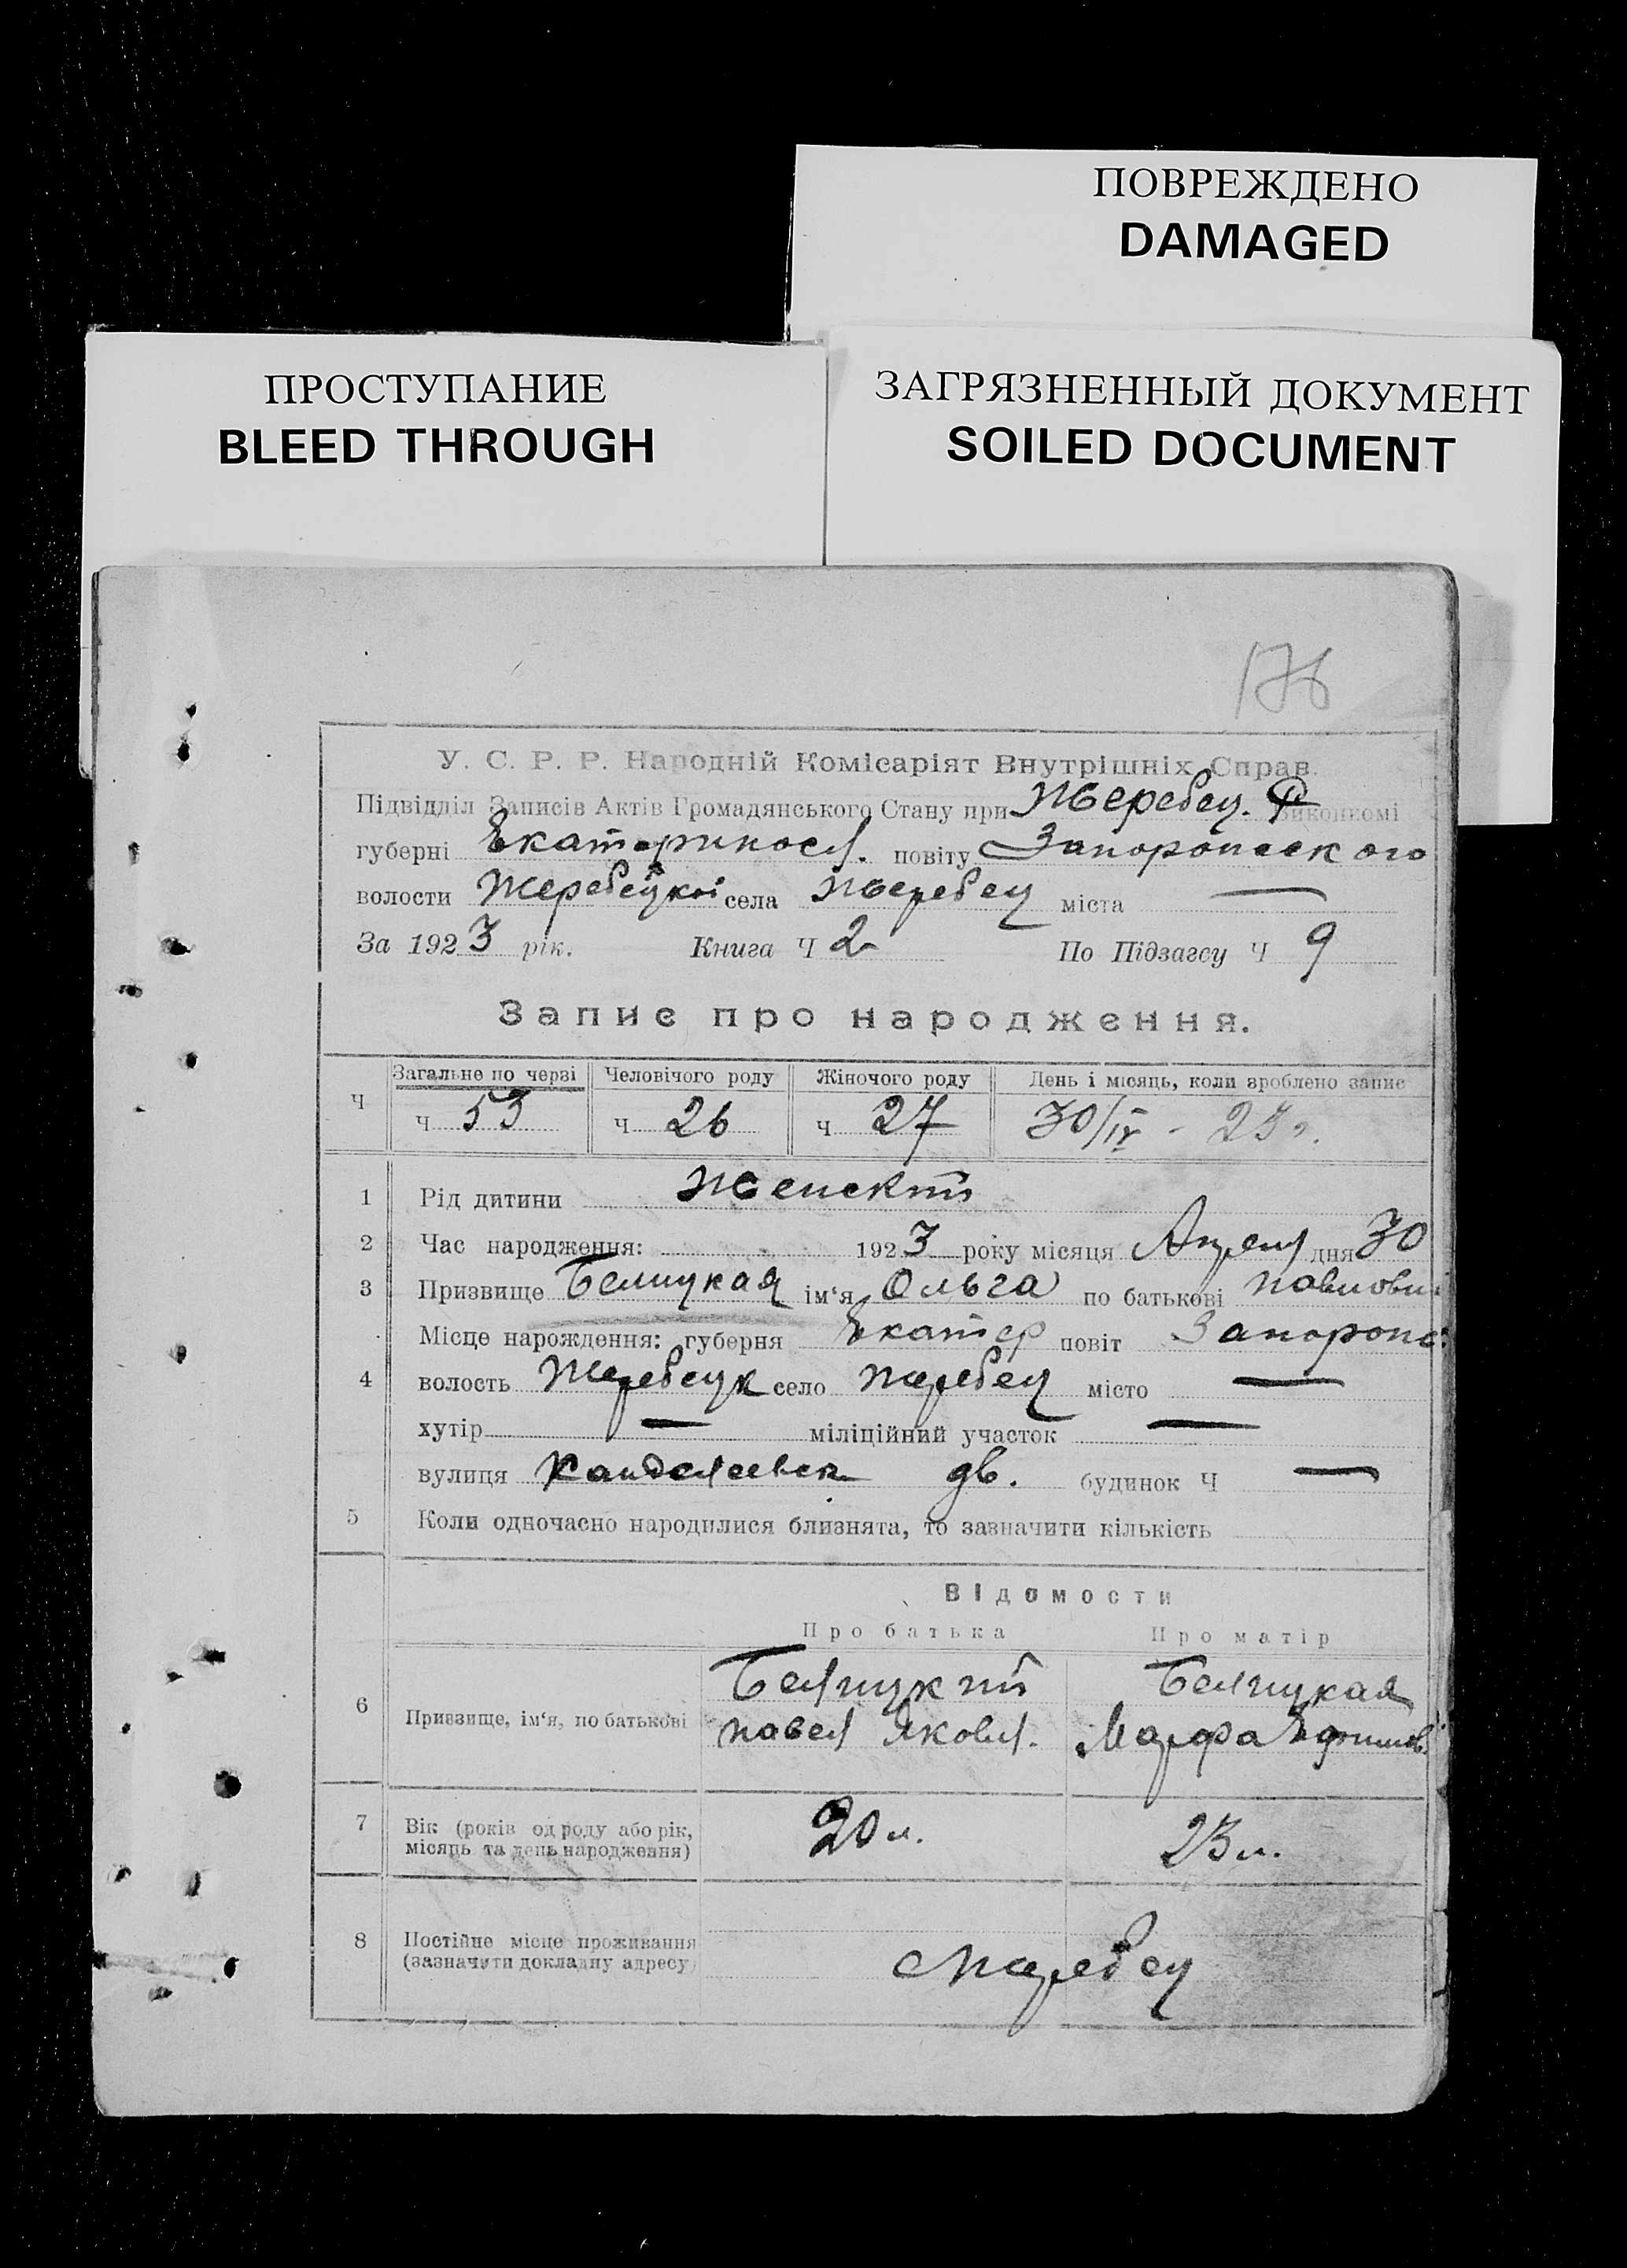 ПОВРЕЖДЕНО
DAMAGED
ПРОСТУПАНИЕ
BLEED THROUGH
ЗАГРЯЗНЕННЫЙ ДОКУМЕНТ
SOILED DOCUMENT
176
У. С. Р. Р. Народній Комісаріят Внутрішніх Справ.
Підвідділ Записів Актів Громадянського Стану при Жеребец. Р Виконкомі
губерні Екатериносл. повіту Запорожского
волости Жеребецкой села Жеребец міста —
За 1923 рік. Книга Ч 2 По Підзагсу Ч 9
Запис про народження.
Загальне по черзі Человічого роду Жіночого роду День і місяць, коли зроблено запис
Ч Ч 53 Ч 26 Ч 27 30/IV - 23 г.
1 Рід дитини женский
2 Час народження: 1923 року місяця Апрель дня 30
3 Призвище Белицкая ім‘я Ольга по батькові Павлови
Місце нарождення: губерня Екатер повіт Запорож
4 волость Жеребецк село Жеребец місто —
хутір — міліційний участок —
вулиця дв. будинок Ч —
5 Коли одночасно народилися близнята, то зазначити кількість
Відомости
Про батька Про матір
Белицкий Белицкая
6 Призвище, ім‘я, по батькові Павел Яковл. Марфа Ефимов.
7 Вік (років од роду або рік, місяць та день народження) 20 л. 23 л.
8 Постійне місце проживання (зазначити докладну адресу) с Жеребец